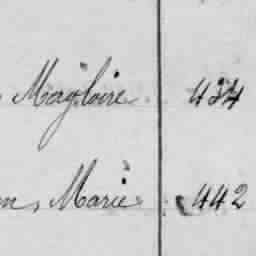 Magloire 434
n, Marie 442